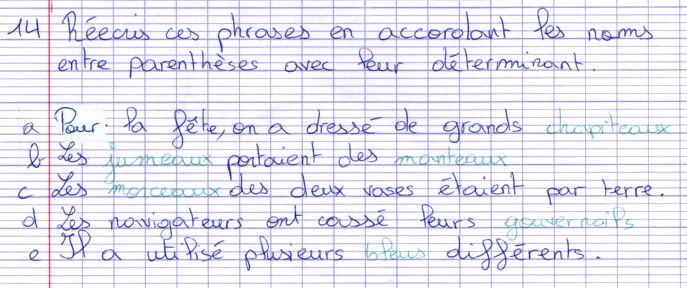 14 Réecris ces phrases en accordant les noms
entre parenthèses avec leur déterminant.
a Pour la fête, on a dressé de grands chapiteaux
b Les jumeaux portaient des manteaux
c Les morceaux des deux vases étaient par terre.
d Les navigateurs ont cassé leurs gouvernails
e Il a utilisé plusieurs bleus différents.